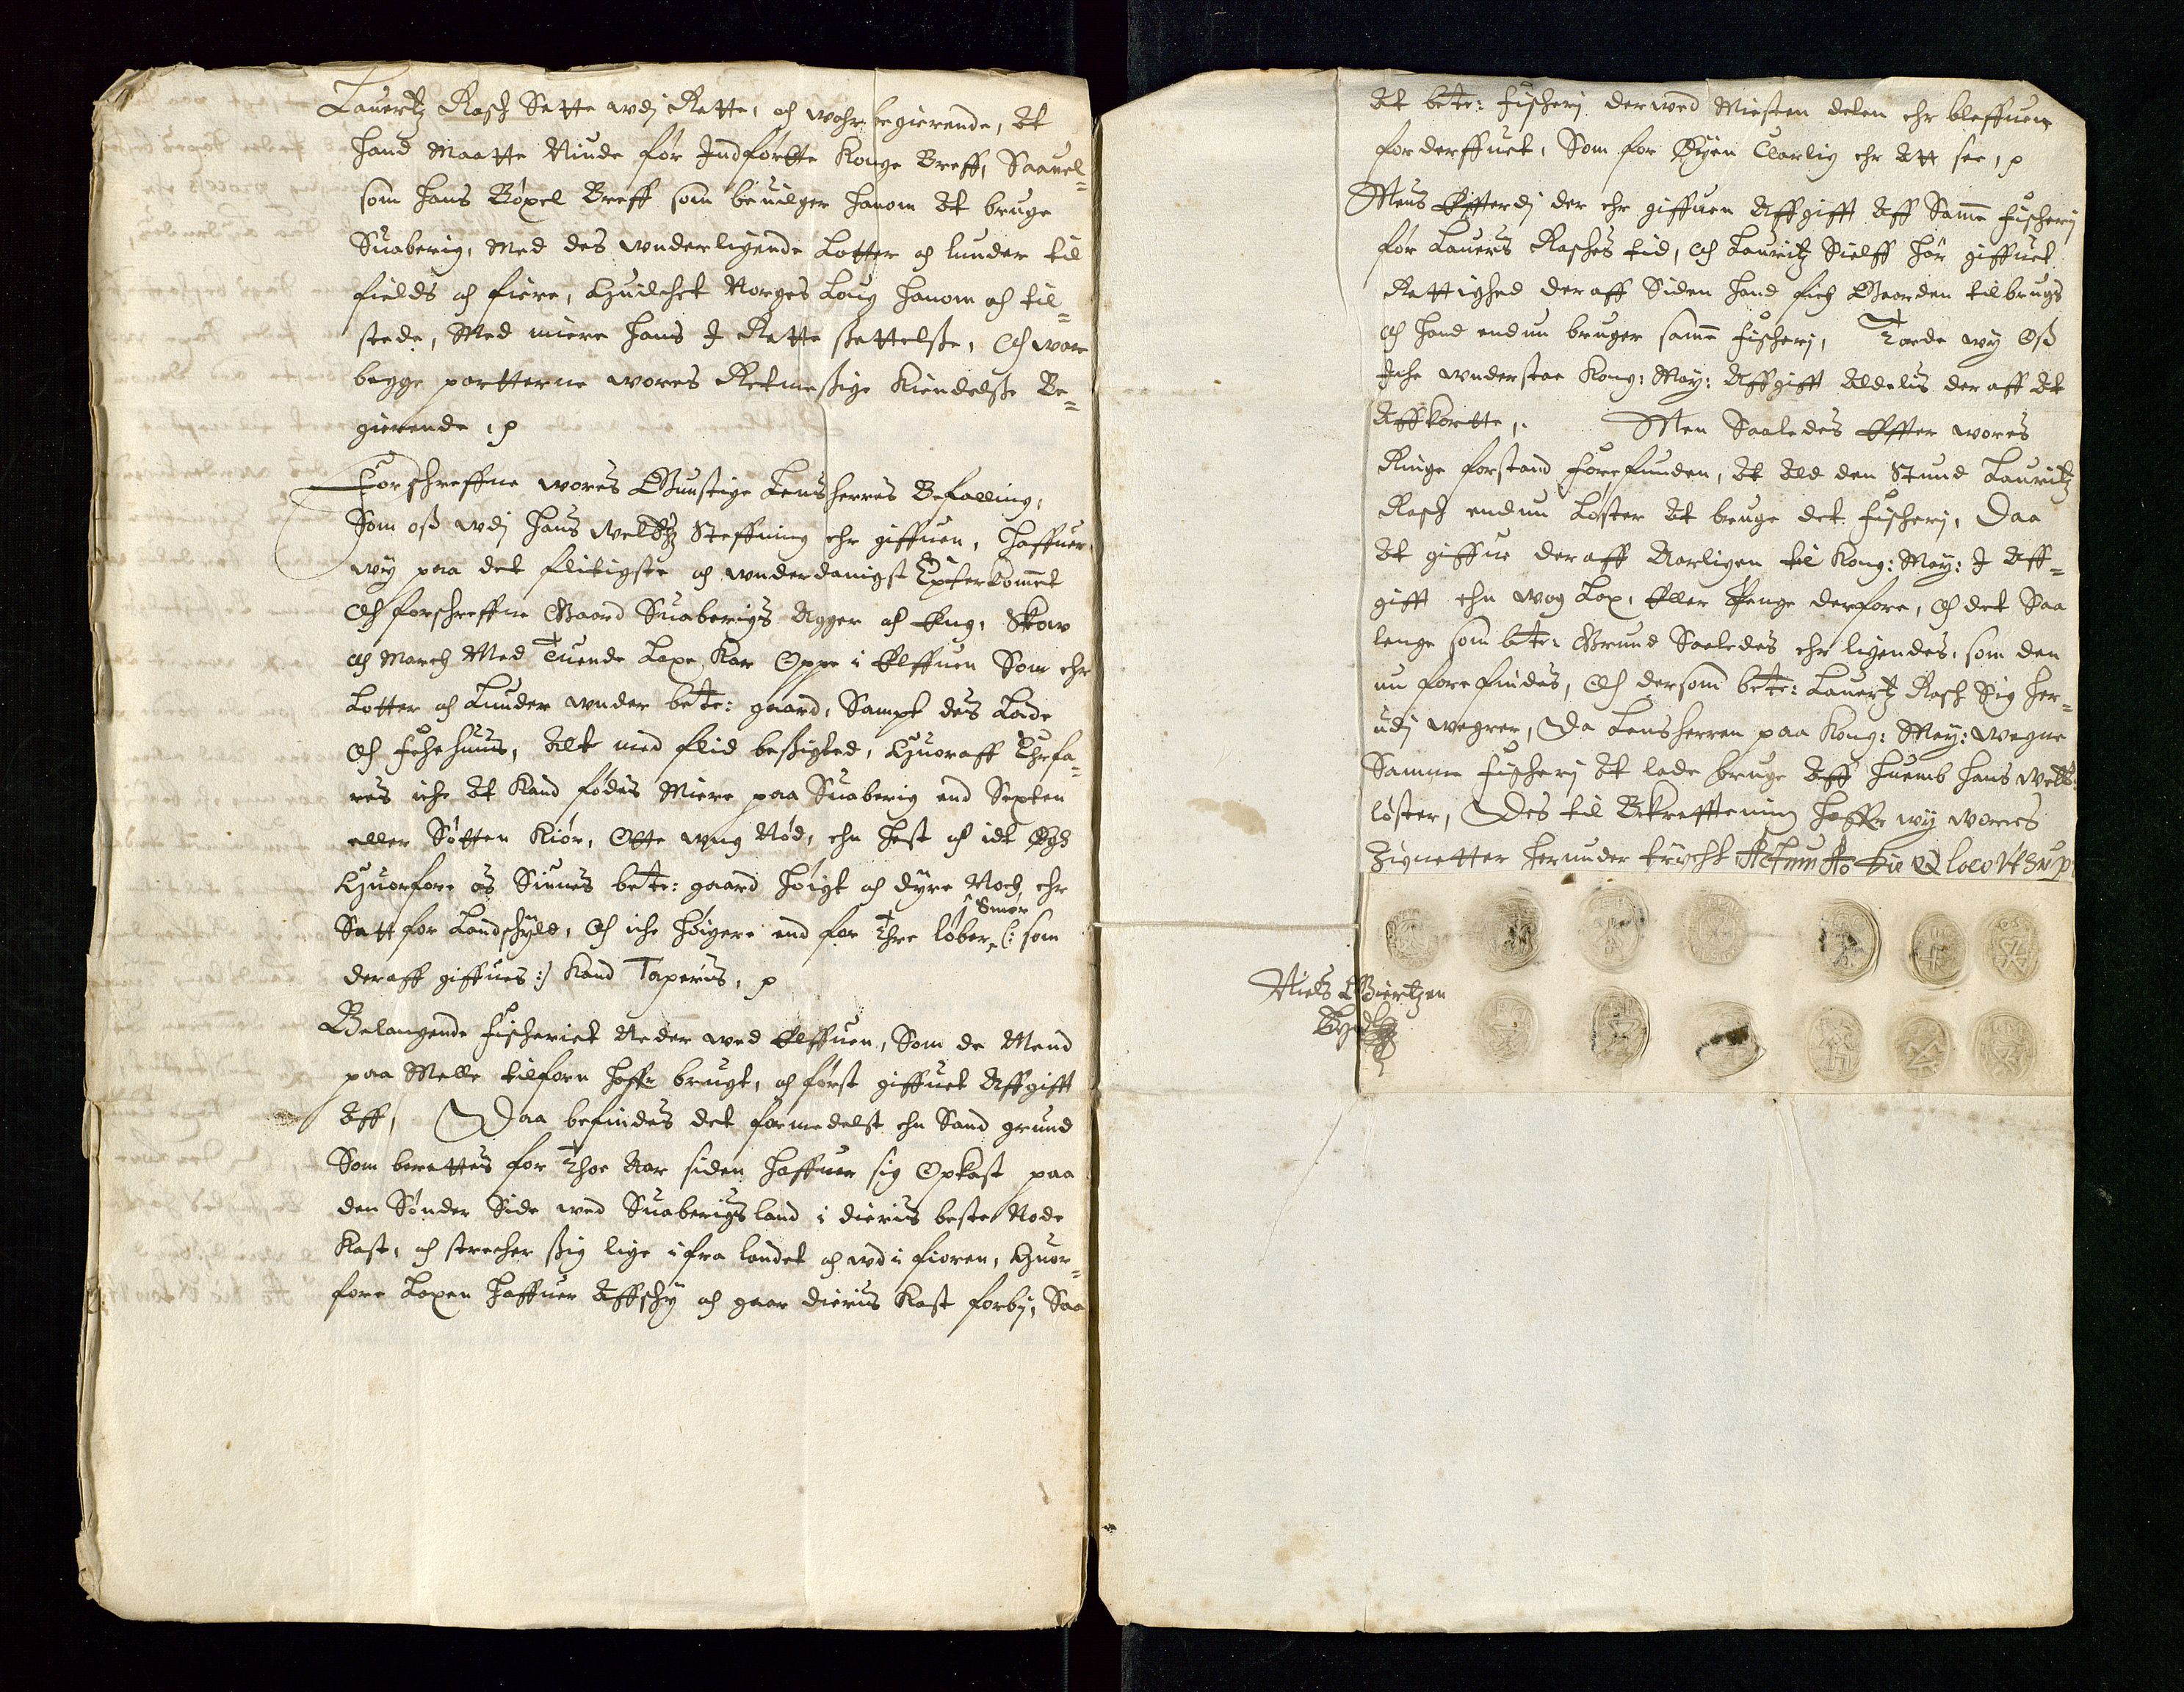 Lauertz Rasch Sette wdj Rette, och wahr begierende, At
hand Maatte Niude for Indførtte Konge Breff, Saauel=
som hans Bøxel Breff som beuilger hanom At bruge
Suaberig, Med des wnderligende Lotter och lunder til
fields och fiere, Huilchet Norges Loug hanom och til=
stede, Med miere hans I Rette ßettelße, Och wore
begge partterne wores Retmeßige Kiendelße Be=
gierende,
Forschreffne wores Gunstige Lensherres Befalling,
Som oß wdj hans Welb: Steffning ehr giffuen, haffuer
wy paa det flitigste och wnderdanigst Epterkommet
Och forschreffne Gaard Suaberigs Agger och Eng, Skow
och March Med Tuende Laxe Kar Oppe i Elffuen Som ehr
Lotter och Lunder wnder bete: gaard, Sampt des Lade
Och Fehehuus, Alt med flid beßigted, Huoraff Ehrfa=
res iche At Kand fødes Miere paa Suaberig end Sexten
eller Søtten Kiør, Otte wng Nød, ehn hest och idt Øgh
Huorfore os Siunes bete: gaard høigt och dyre Noch ehr
Satt for Landschyld, Och iche høigere end for Thre løber Smør (: som
deraff giffues :) Kand Taxeris,
Belangende Fischeriet Neder wed Elffuen, Som de Mend
paa Melle tilforn haffr brugt, och først giffuet Affgifft
Aff, Daa befindes det formedelst ehn Sand grund
Som berettes for Thoe Aar siden haffuer sig Opkast paa
den Sønder Side wed Suaberigs land i dieris beste Node
Kast, och strecher ßig lige ifra landet och wd i fioren, Huor=
fore Laxen haffuer Affschy och gaar dieris Kast forbj, Saa
At bete: Fischerj derwed Miesten delen ehr bleffuen
forderffuet, Som for Øyen Clarlig ehr Att see,
Mens Effterdj der ehr giffuen Affgifft Aff Samme Fischerj
før Lauers Rasches tid, och Lauritz Sielff har giffuet
Rettighed deraff Siden hand fich Gaarden til brugs
och hand endnu bruger samme Fischerj, Torde wy Oß
Iche wnderstae Kong: May: Affgifft Aldelis deraff At
Affkortte, Men Saaledes Effter wores
Ringe forstand forefunden, At Ald den Stund Lauritz
Rasch endnu Løster At bruge det Fischerj, Daa
At giffue deraff Aarligen til Kong: May: I Aff=
gifft ehn wog Lax, Eller Penge derfore, Och det Saa
lenge som bte: Grund Saaledes ehr ligendes, som den
nu forefindes, Och dersom bete: Lauertz Rasch Sig her=
udj wegrer, Da Lensherren paa Kong: May: wegne
Samme Fischerj At lade bruge Aff huemb hans Welb:
løster, Des til Bekrefftening haffr wy wores
Zignetter herunder trycht Actum Ao Die &amp; loco Vt Supra
Niels Giertzen